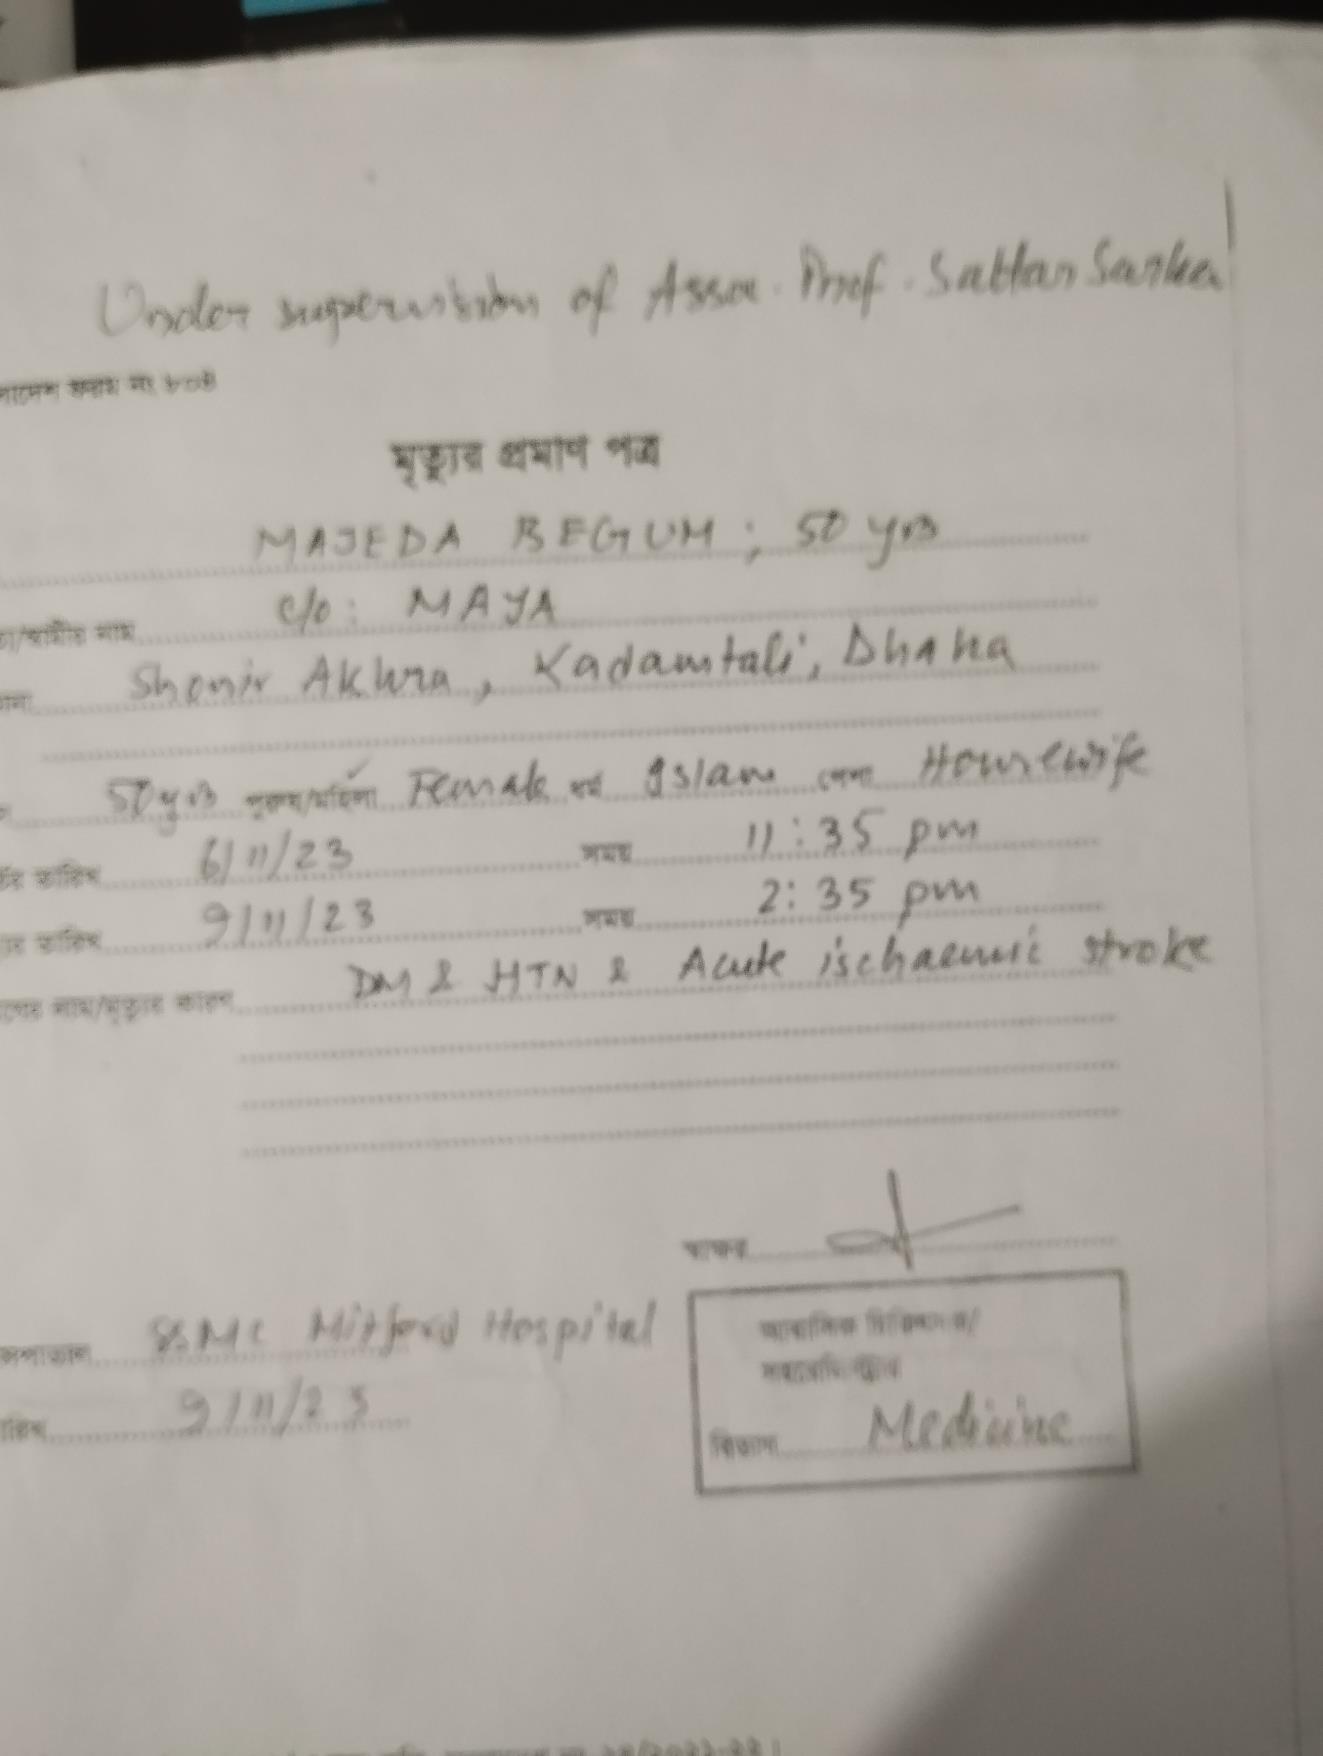 Under supervision of Asso. Prof. Sattar Sarker
ফরম নং ৮০৪
মৃত্যুর প্রমাণ পত্র
MAJEDA BEGUM; 50 yrs
/স্বামীর নাম C/O: MAYA
Shonir Akhra, Kadamtali, Dhaka
50 yrs পুরুষ/মহিলা Female ধর্ম Islam পেশা Housewife
তারিখ 6/11/23 সময় 11:35 pm
তারিখ 9/11/23 সময় 2:35 pm
নাম/মৃত্যুর কারণ DM & HTN & Acute ischaemic stroke
স্বাক্ষর
SSMC Mitford Hospital
9/11/23
বিভাগ Medicine